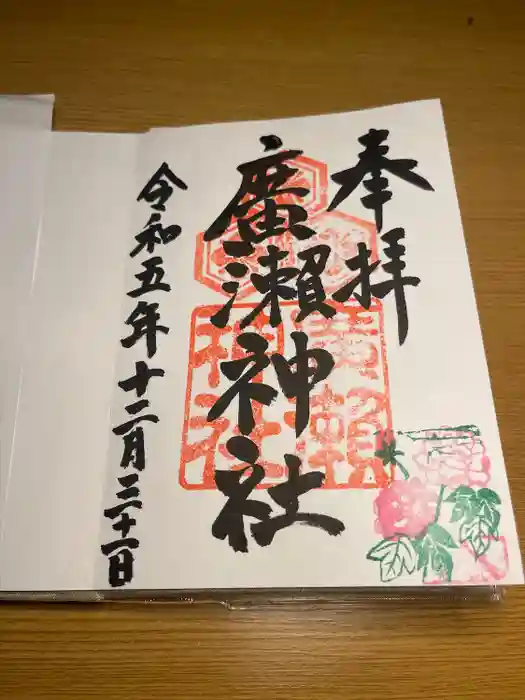 奉拝
廣瀬神社
令和五年十二月三十一日